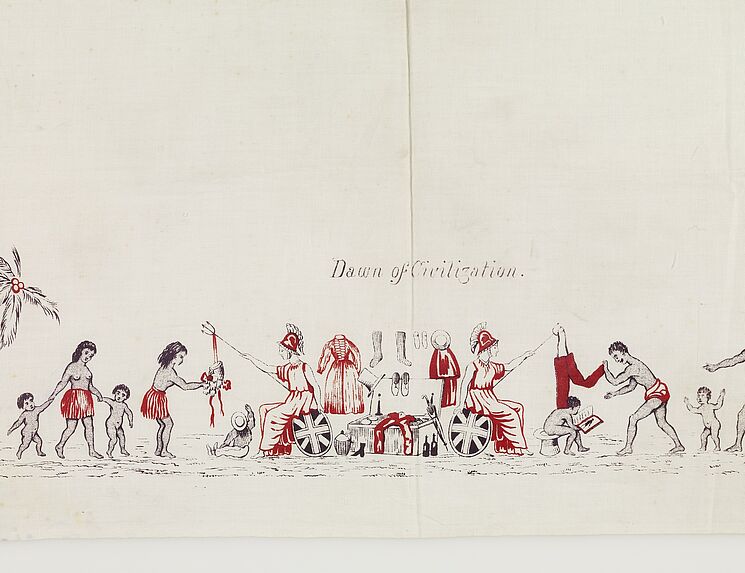 Dawn of Civilization.